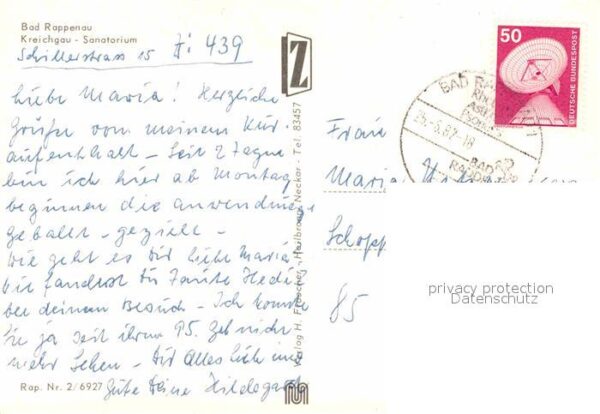 Bad Rappenau
Kreichgau - Sanatorium
Schillerstrass 15 Zi 439
Liebe Maria! Herzliche
Grüße vom meinem Kur
aufenthalt - Seit 2 Tagen
bin ich hier ab Montag
beginnen die anwendung
geballt - gezielt -
Wie geht es Dir liebe Maria
wie fandest du Tante Hedi
bei deinem Besuch - Ich konnte
Sie ja seit ihrem 75. Geb nicht
mehr sehen - Dir Alles liebe und
Gute Deine Hildegard
Rap. Nr. 2/6927
Verlag H. Fröscher, Heilbronn/Neckar - Tel. 83457
Z
50
DEUTSCHE BUNDESPOST
BAD RAPPENAU
25.-5.82-18
BAD
Frau
Maria
Schopp
85
privacy protection
Datenschutz